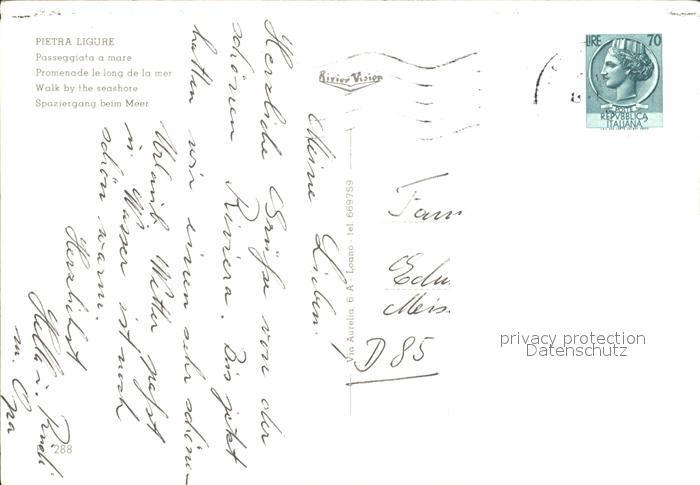 PIETRA LIGURE
Passeggiata a mare
Promenade le long de la mer
Walk by the seashore
Spaziergang beim Meer
Rivier Vision
LIRE 70
POSTE
REPVBBLICA
ITALIANA
Meine Lieben.
Herzliche Grüße von der
schönen Riviera. Bis jetzt
hatten wir einen sehr schönen
Urlaub Wetter passt
u. Wasser ist noch
schön warm.
Herzlichst
Hella u. Rudi
m. Opa
Via Aurelia, 6 A - Loano - tel. 669759
Fam
Edu
Meis
D 85
privacy protection
Datenschutz
288